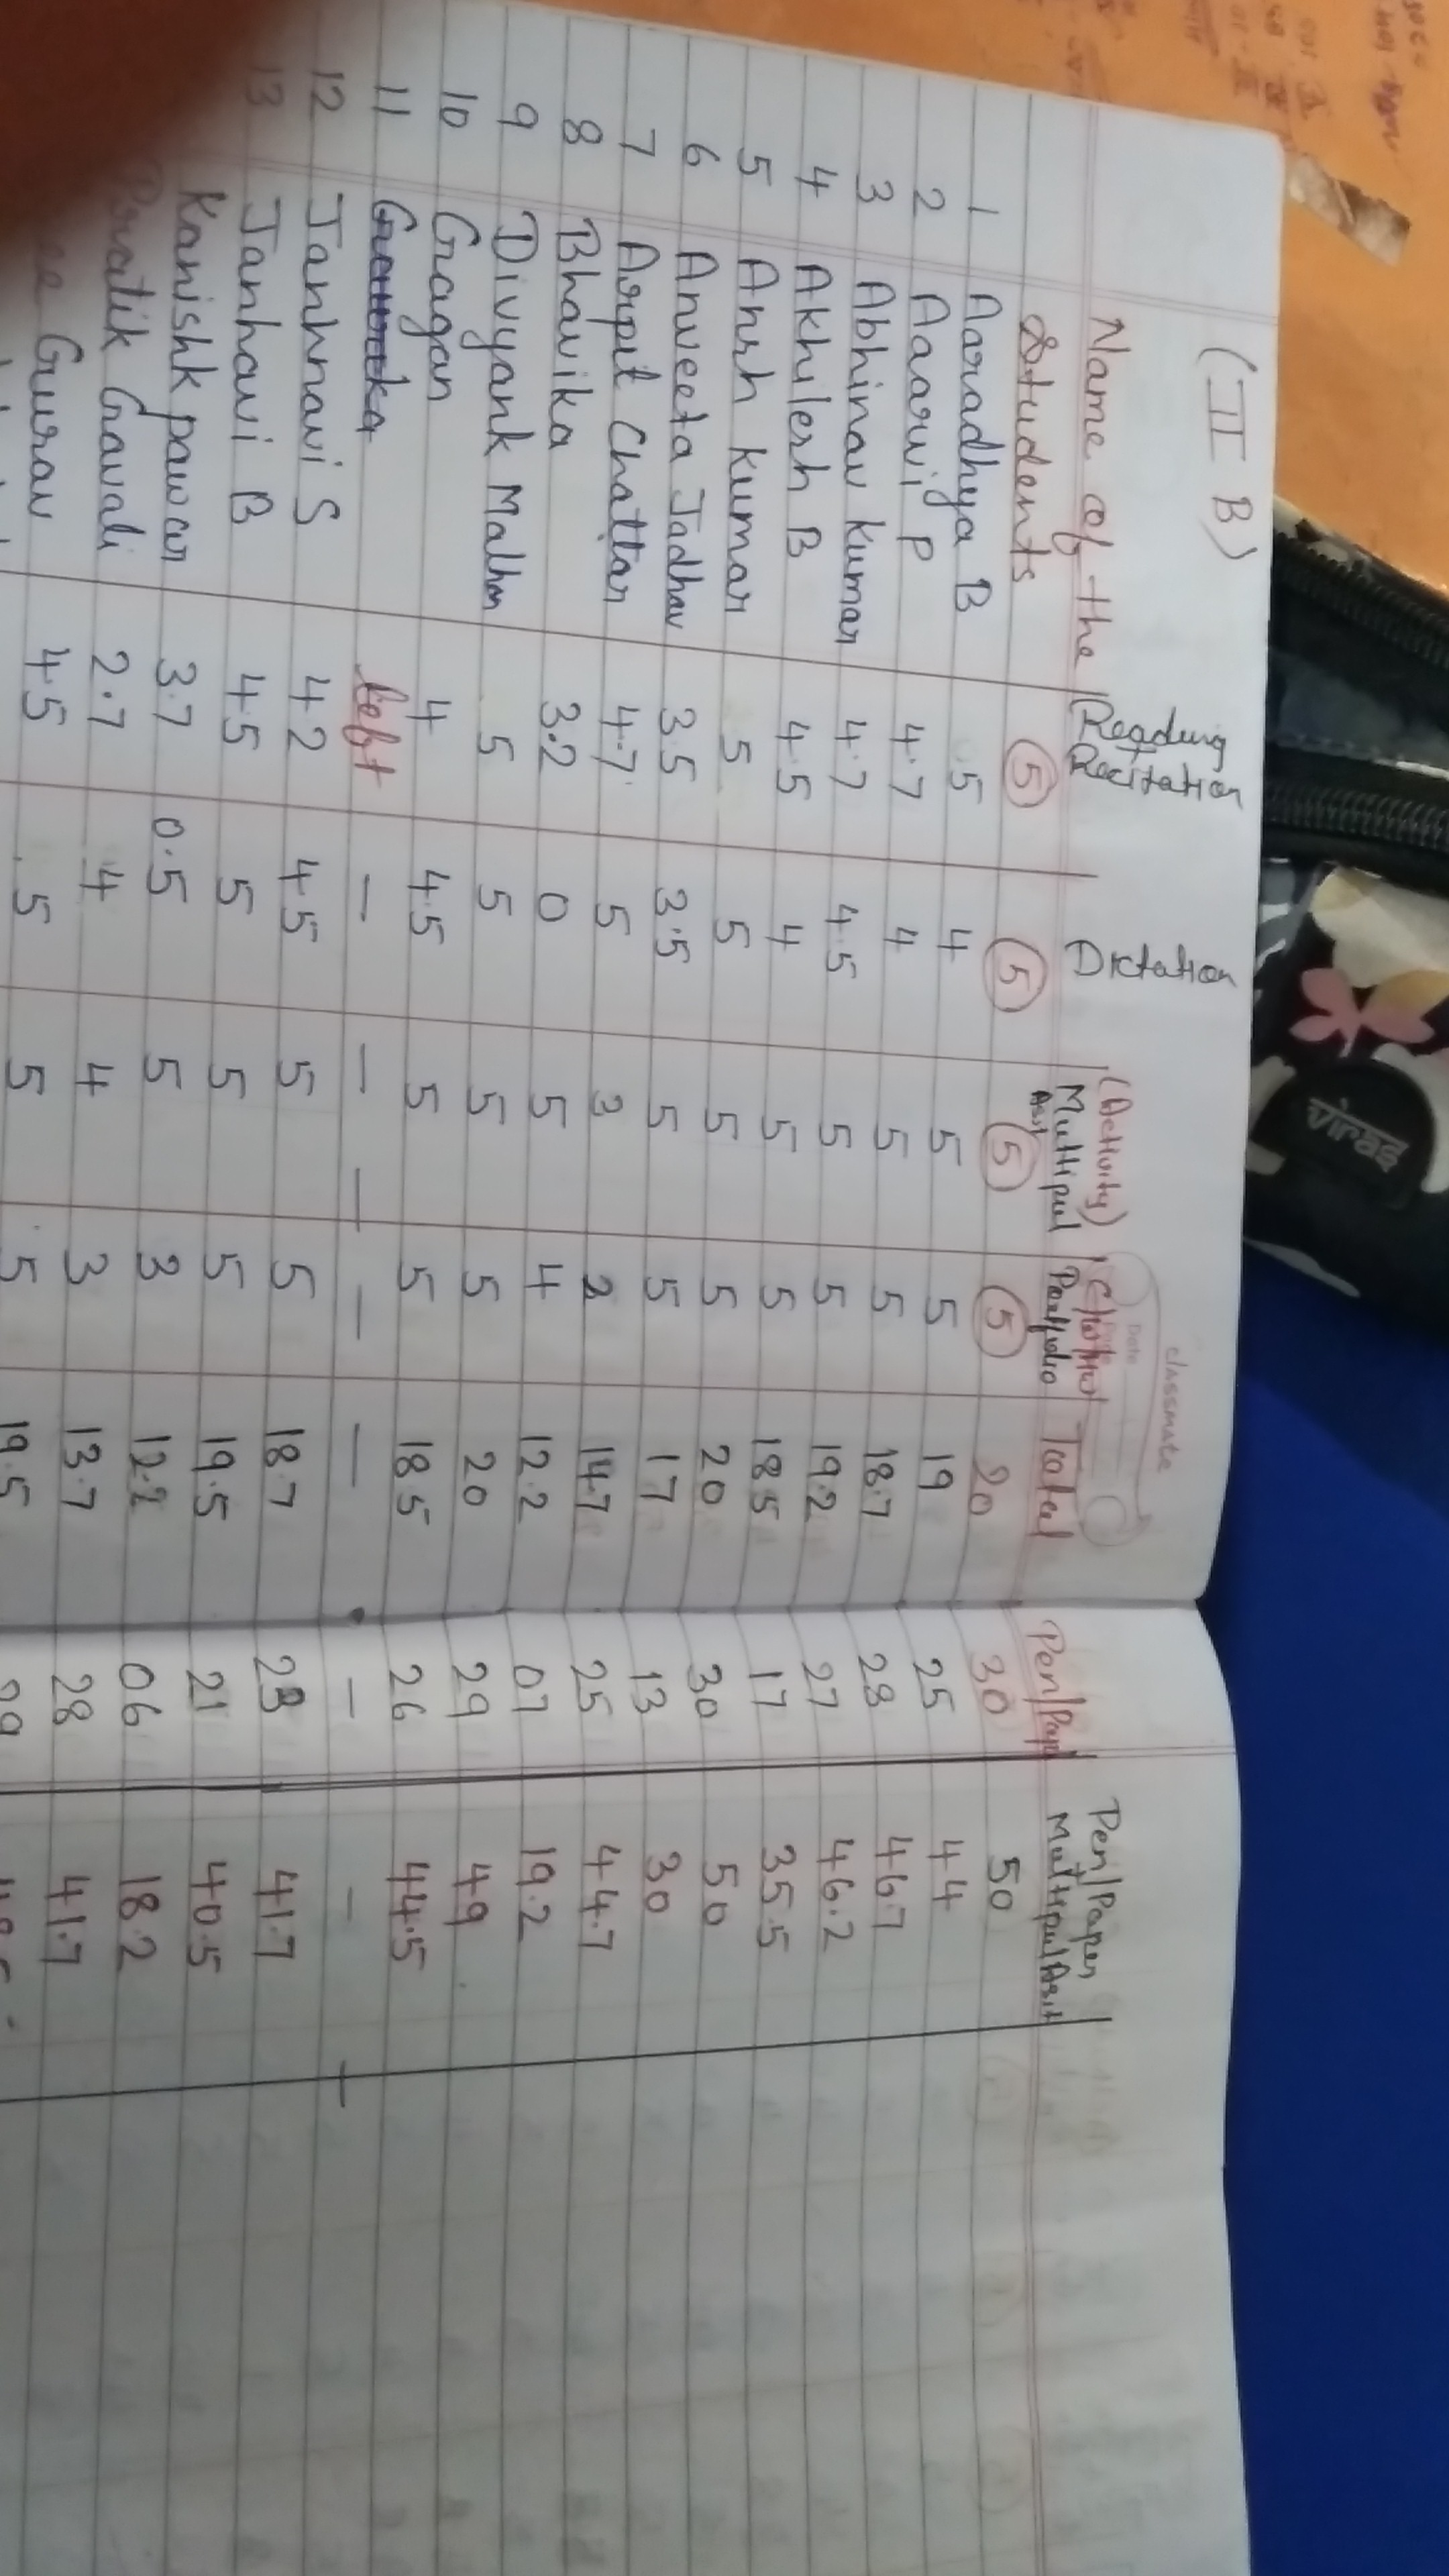 (II B)
classmate
Date
Name of the Students Reading Recitation Dictation (Activity) Multipul Asst Portfolio Total Pen/Pap Pen/Paper Multipul Asst
5 5 5 5 20 30 50
1 Aaradhya B 5 4 5 5 19 25 44
2 Aaarvi P 4.7 4 5 5 18.7 28 46.7
3 Abhinav Kumar 4.7 4.5 5 5 19.2 27 46.2
4 Akhilesh B 4.5 4 5 5 18.5 17 35.5
5 Ansh Kumar 5 5 5 5 20 30 50
6 Anveeta Jadhav 3.5 3.5 5 5 17 13 30
7 Arpit Chattar 4.7 5 3 2 14.7 25 44.7
8 Bhavika 3.2 0 5 4 12.2 07 19.2
9 Divyank Malhan 5 5 5 5 20 29 49
10 Gagan 4 4.5 5 5 18.5 26 44.5
11 left - - - - - -
12 Janhnavi S 4.2 4.5 5 5 18.7 23 41.7
13 Janhavi B 4.5 5 5 5 19.5 21 40.5
Kanishk pawar 3.7 0.5 5 3 12.2 06 18.2
Pratik Gavali 2.7 4 4 3 13.7 28 41.7
Gurav 4.5 5 5 5 19.5
viras